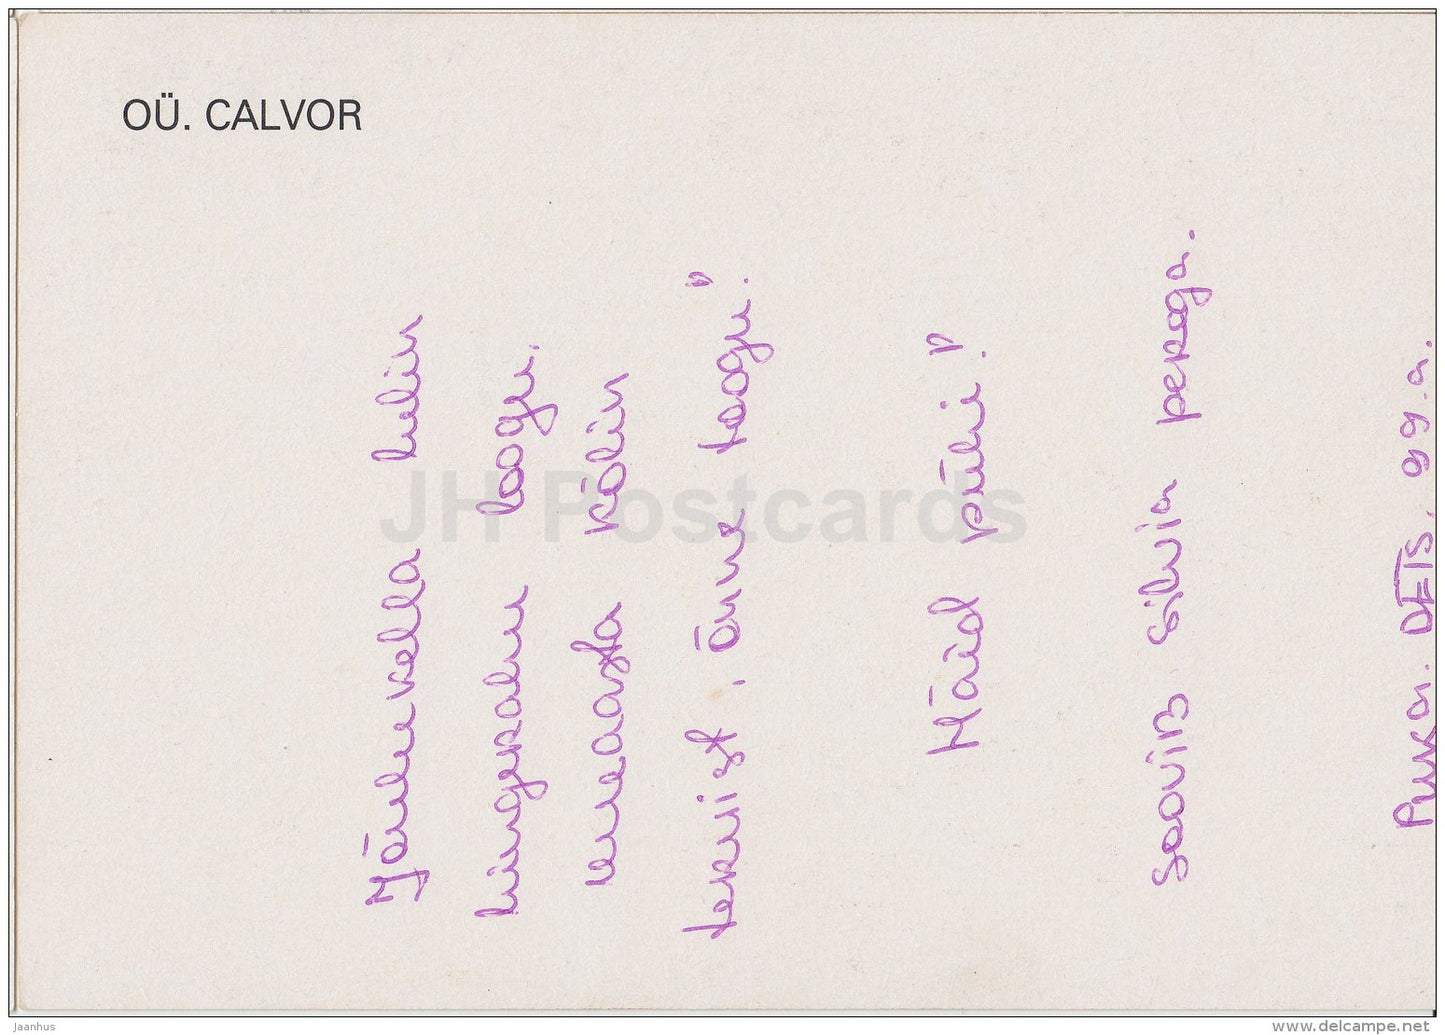 OÜ. CALVOR
Jõulukella helin
hingerahu toogu,
uueaasta kõlin
tervist, õnne loogu!
Häid pühi!
soovib Silvia perega.
Puka. DETS. 99.a.
JH Postcards
Jaanhus
www.delcampe.net